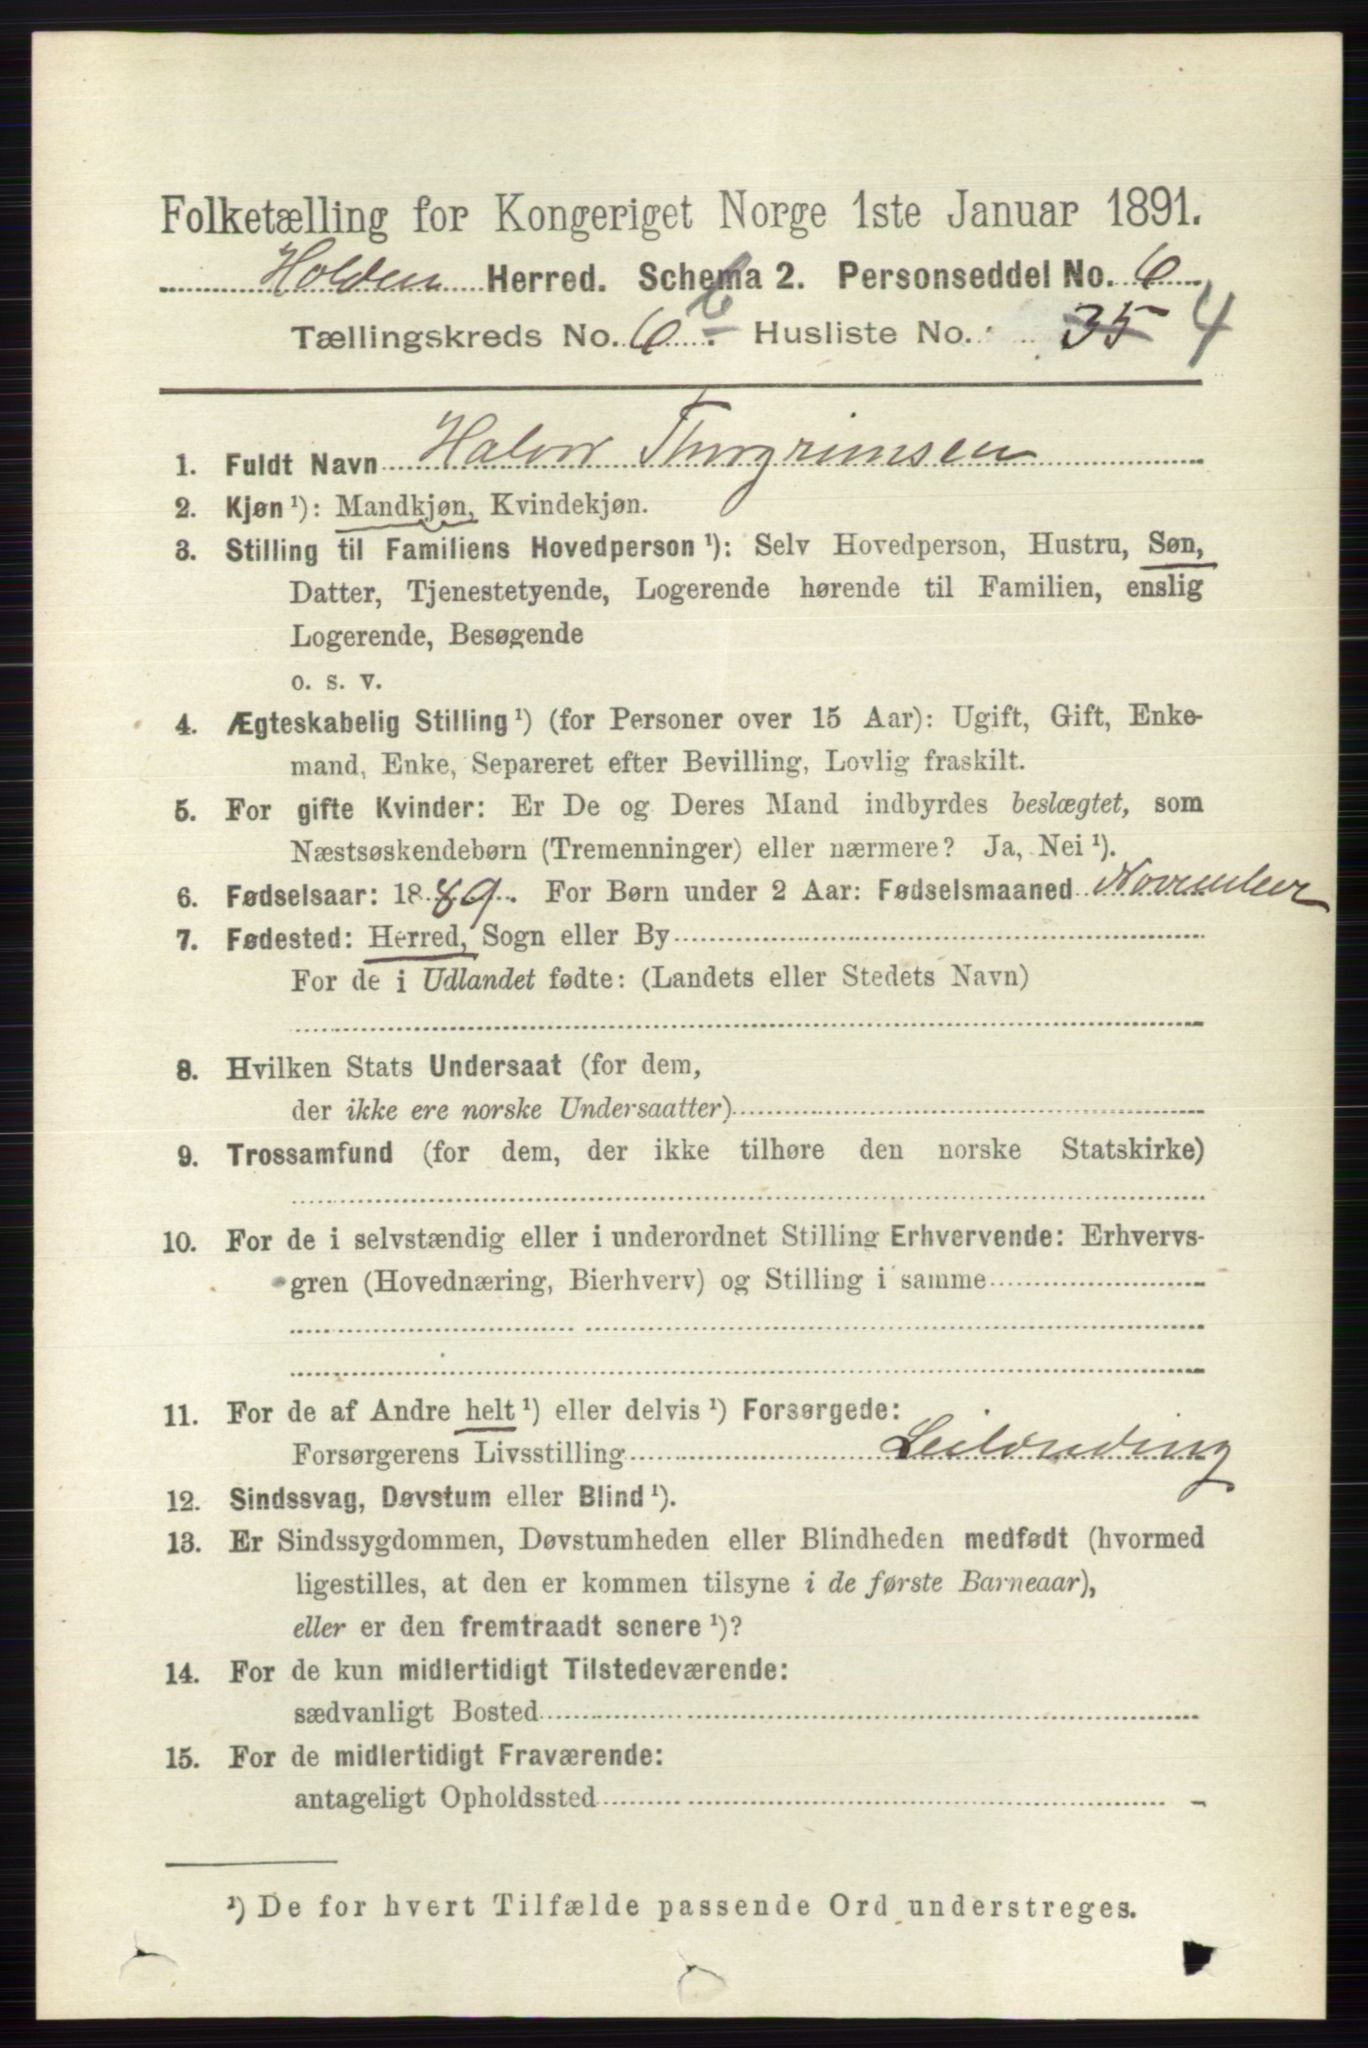 Folketælling for Kongeriget Norge 1ste Januar 1891.
Holden Herred. Schema 2. Personseddel No. 6
Tællingskreds No. 6 b. Husliste No. 35 4
1. Fuldt Navn Halvor Thorgrimsen
2. Kjøn ¹): Mandkjøn, Kvindekjøn.
3. Stilling til Familiens Hovedperson ¹): Selv Hovedperson, Hustru, Søn,
Datter, Tjenestetyende, Logerende hørende til Familien, enslig
Logerende, Besøgende
o. s. v.
4. Ægteskabelig Stilling ¹) (for Personer over 15 Aar): Ugift, Gift, Enke-
mand, Enke, Separeret efter Bevilling, Lovlig fraskilt.
5. For gifte Kvinder: Er De og Deres Mand indbyrdes beslægtet, som
Næstsøskendebørn (Tremenninger) eller nærmere? Ja, Nei ¹).
6. Fødselsaar: 1889. For Børn under 2 Aar: Fødselsmaaned November
7. Fødested: Herred, Sogn eller By
For de i Udlandet fødte: (Landets eller Stedets Navn)
8. Hvilken Stats Undersaat (for dem,
der ikke ere norske Undersaatter)
9. Trossamfund (for dem, der ikke tilhøre den norske Statskirke)
10. For de i selvstændig eller i underordnet Stilling Erhvervende: Erhvervs-
gren (Hovednæring, Bierhverv) og Stilling i samme
11. For de af Andre helt ¹) eller delvis ¹) Forsørgede:
Forsørgerens Livsstilling Leilænding
12. Sindssvag, Døvstum eller Blind ¹).
13. Er Sindssygdommen, Døvstumheden eller Blindheden medfødt (hvormed
ligestilles, at den er kommen tilsyne i de første Barneaar),
eller er den fremtraadt senere ¹)?
14. For de kun midlertidigt Tilstedeværende:
sædvanligt Bosted
15. For de midlertidigt Fraværende:
antageligt Opholdssted
¹) De for hvert Tilfælde passende Ord understreges.